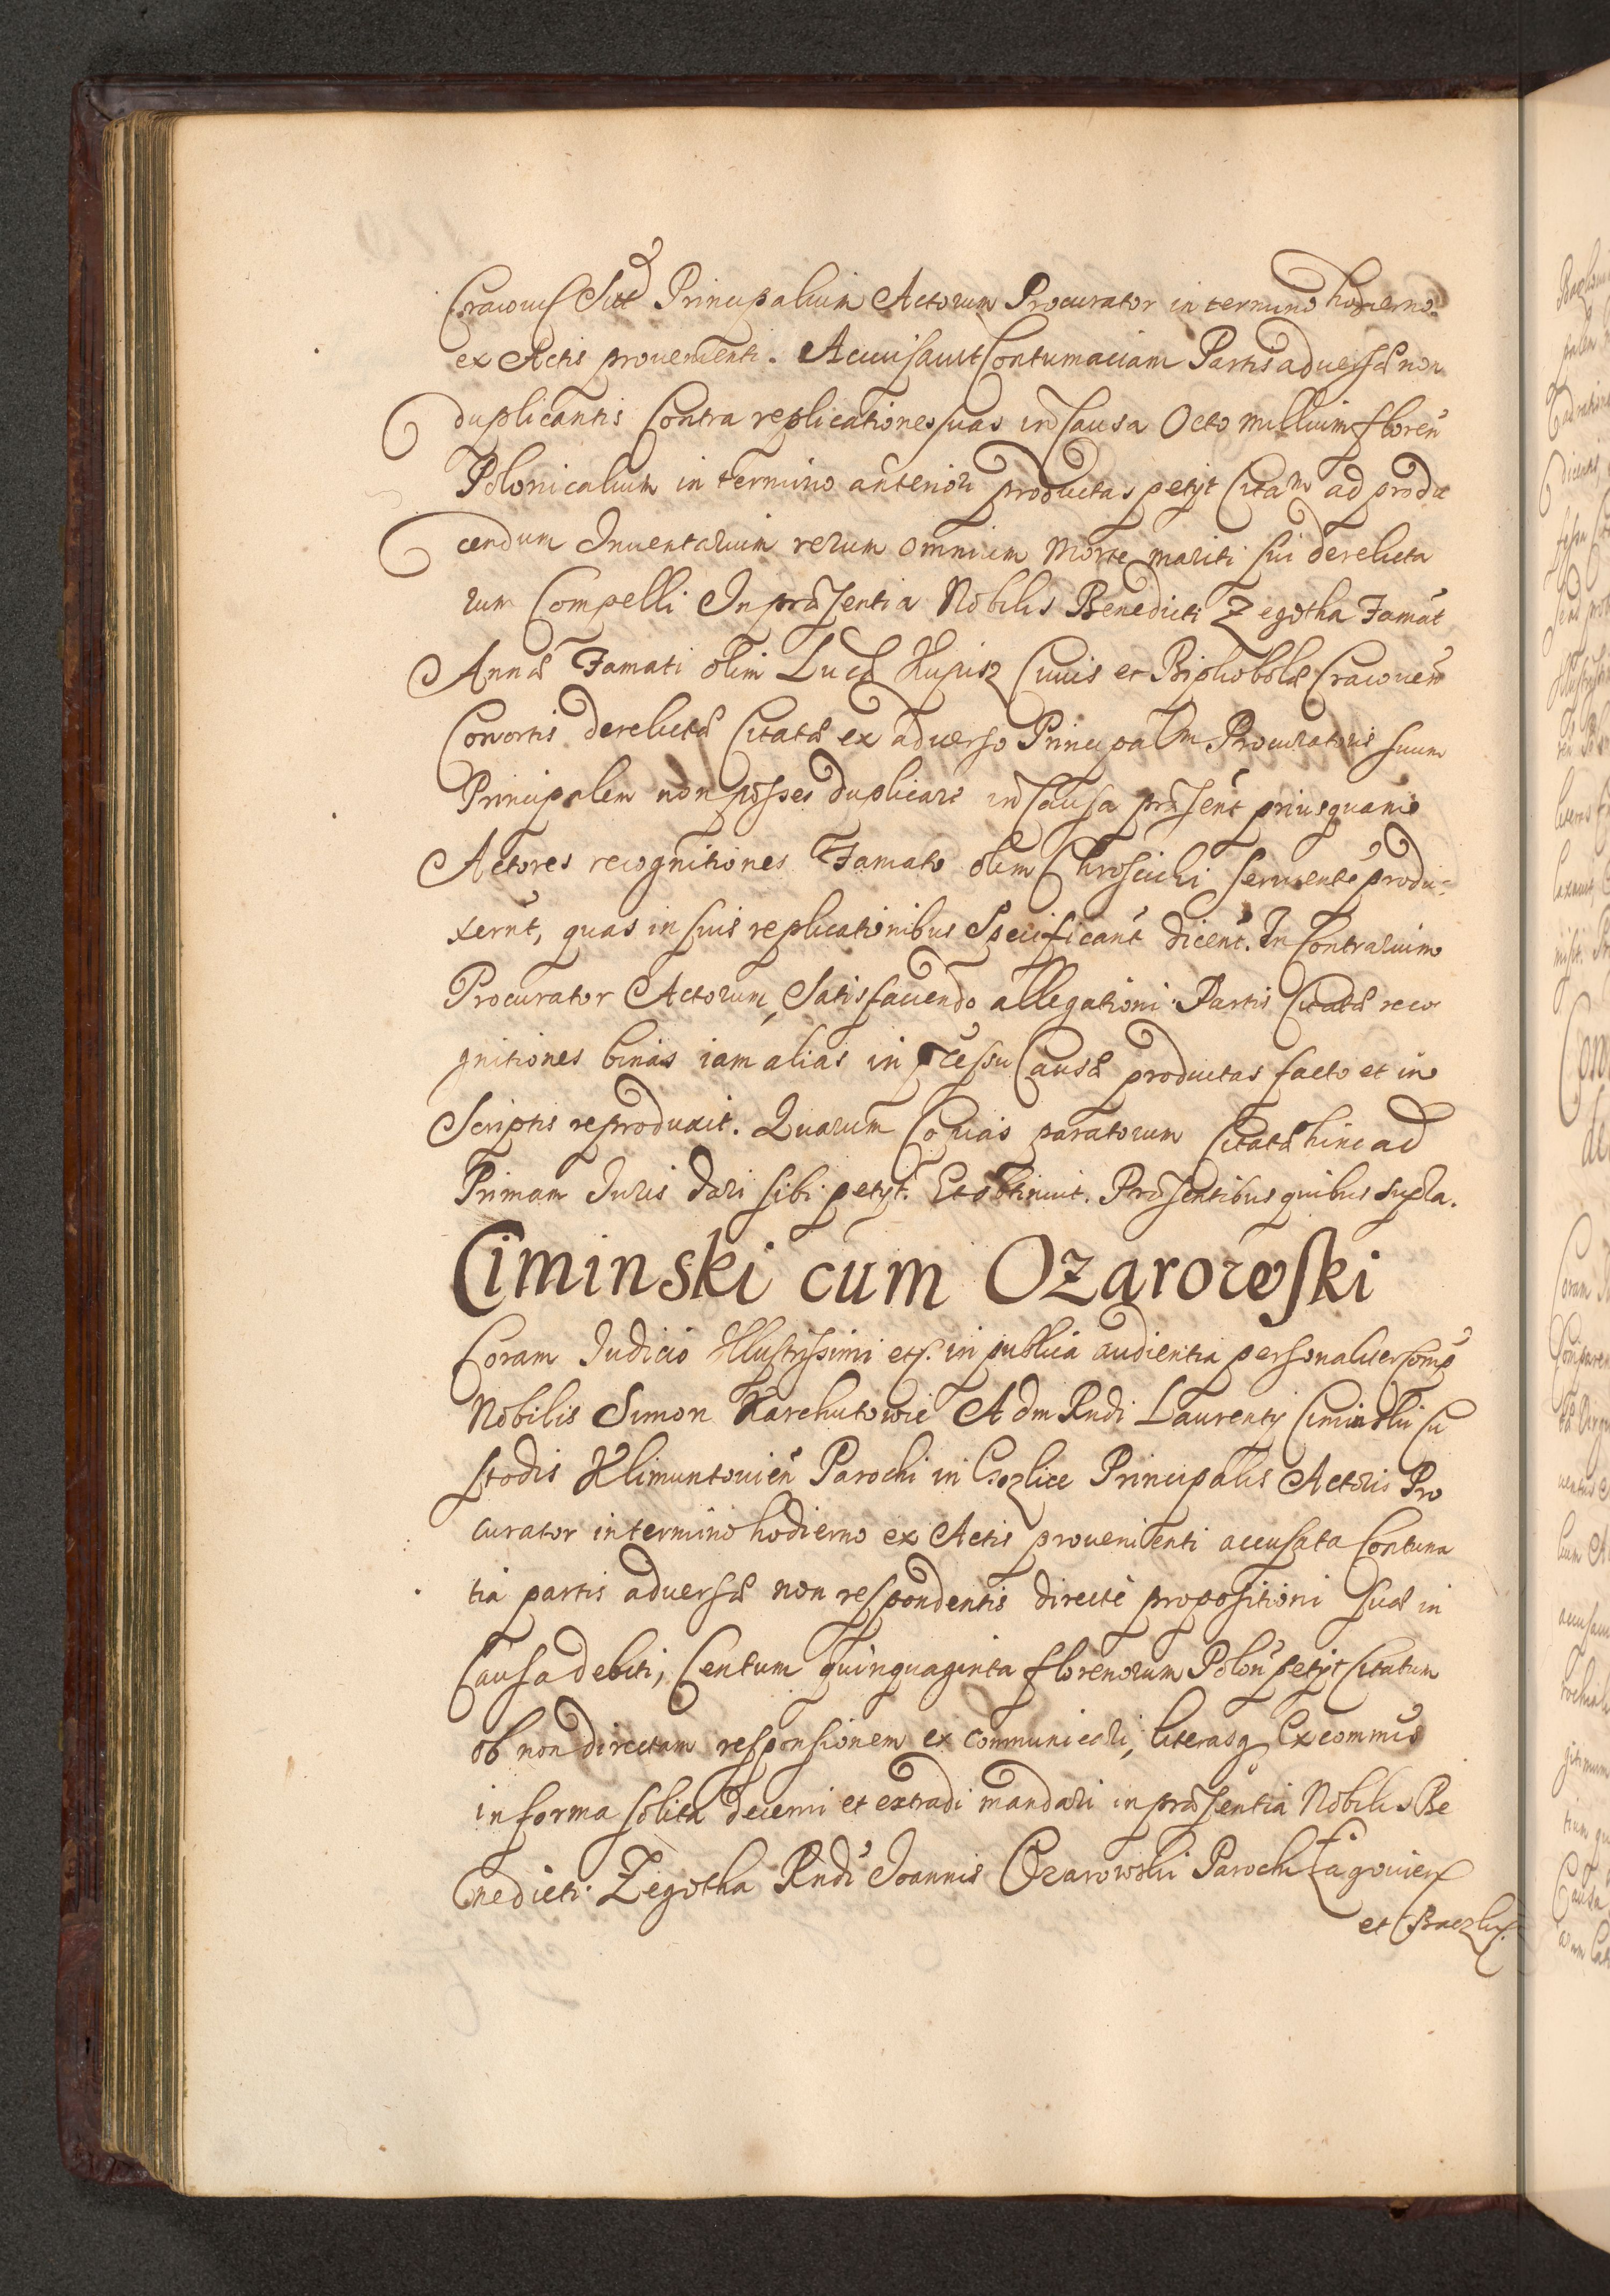 Principalium Actorum Procurator in termino hodierno
ex Actis provenienti. Accusavit Contumaciam Partis adversæ non
duplicantis Contra replicationes suas in Causa Octo millium floreñ
Polonicalium in termino anteriori productas petijt Citam ad produ
cendum Inventarium rerum omnium morte mariti sui derelicta
rum Compelli In præsentia Nobilis Benedicti Zegotha Famat
Annæ Famati olim Lucæ Civis et Cracovien
Consortis derelictæ Citatæ ex adverso Principalm Procuratoris suum
Principalem non posses duplicare in Causa præsent priusquam
Actores recognitiones Famato olim produ
xernt, quas in suis replicationibus Specificant dicent. In Contrarium
Procurator Actorum, Satisfaciendo allegationi Partis Citatæ reco
gnitiones binas iam alias in pcessu Causæ productas facto et in
Scriptis reproduxit. Quarum Copias paratorum Citatæ hinc ad
Primam Iuris dari sibi petijt. Et obtinuit. Præsentibus quibus supra.
Ciminski cum Ozarowski
Coram Iudicio Illustrissimi etc. in publica audientia personaliter Comp
Nobilis Simon Karchutowic Adm Rndi Laurentij Ciminski Cu
stodis Klimuntovień Parochi in Principalis Actoris Pro
curator in termino hodierno ex Actis provenienti accusata Contuma
tia partis adversæ non respondentis directe propositioni suæ in
Causa debiti, Centum quinquaginta florenorum Polon petijt Citatum
ob non directam responsionem excommunicari, literasq Excommus
in forma solita decerni et extradi mandari in præsentia Nobilis Be
nedicti Zegotha Rndi Joannis Ozarowski Parochi Łagovien
et